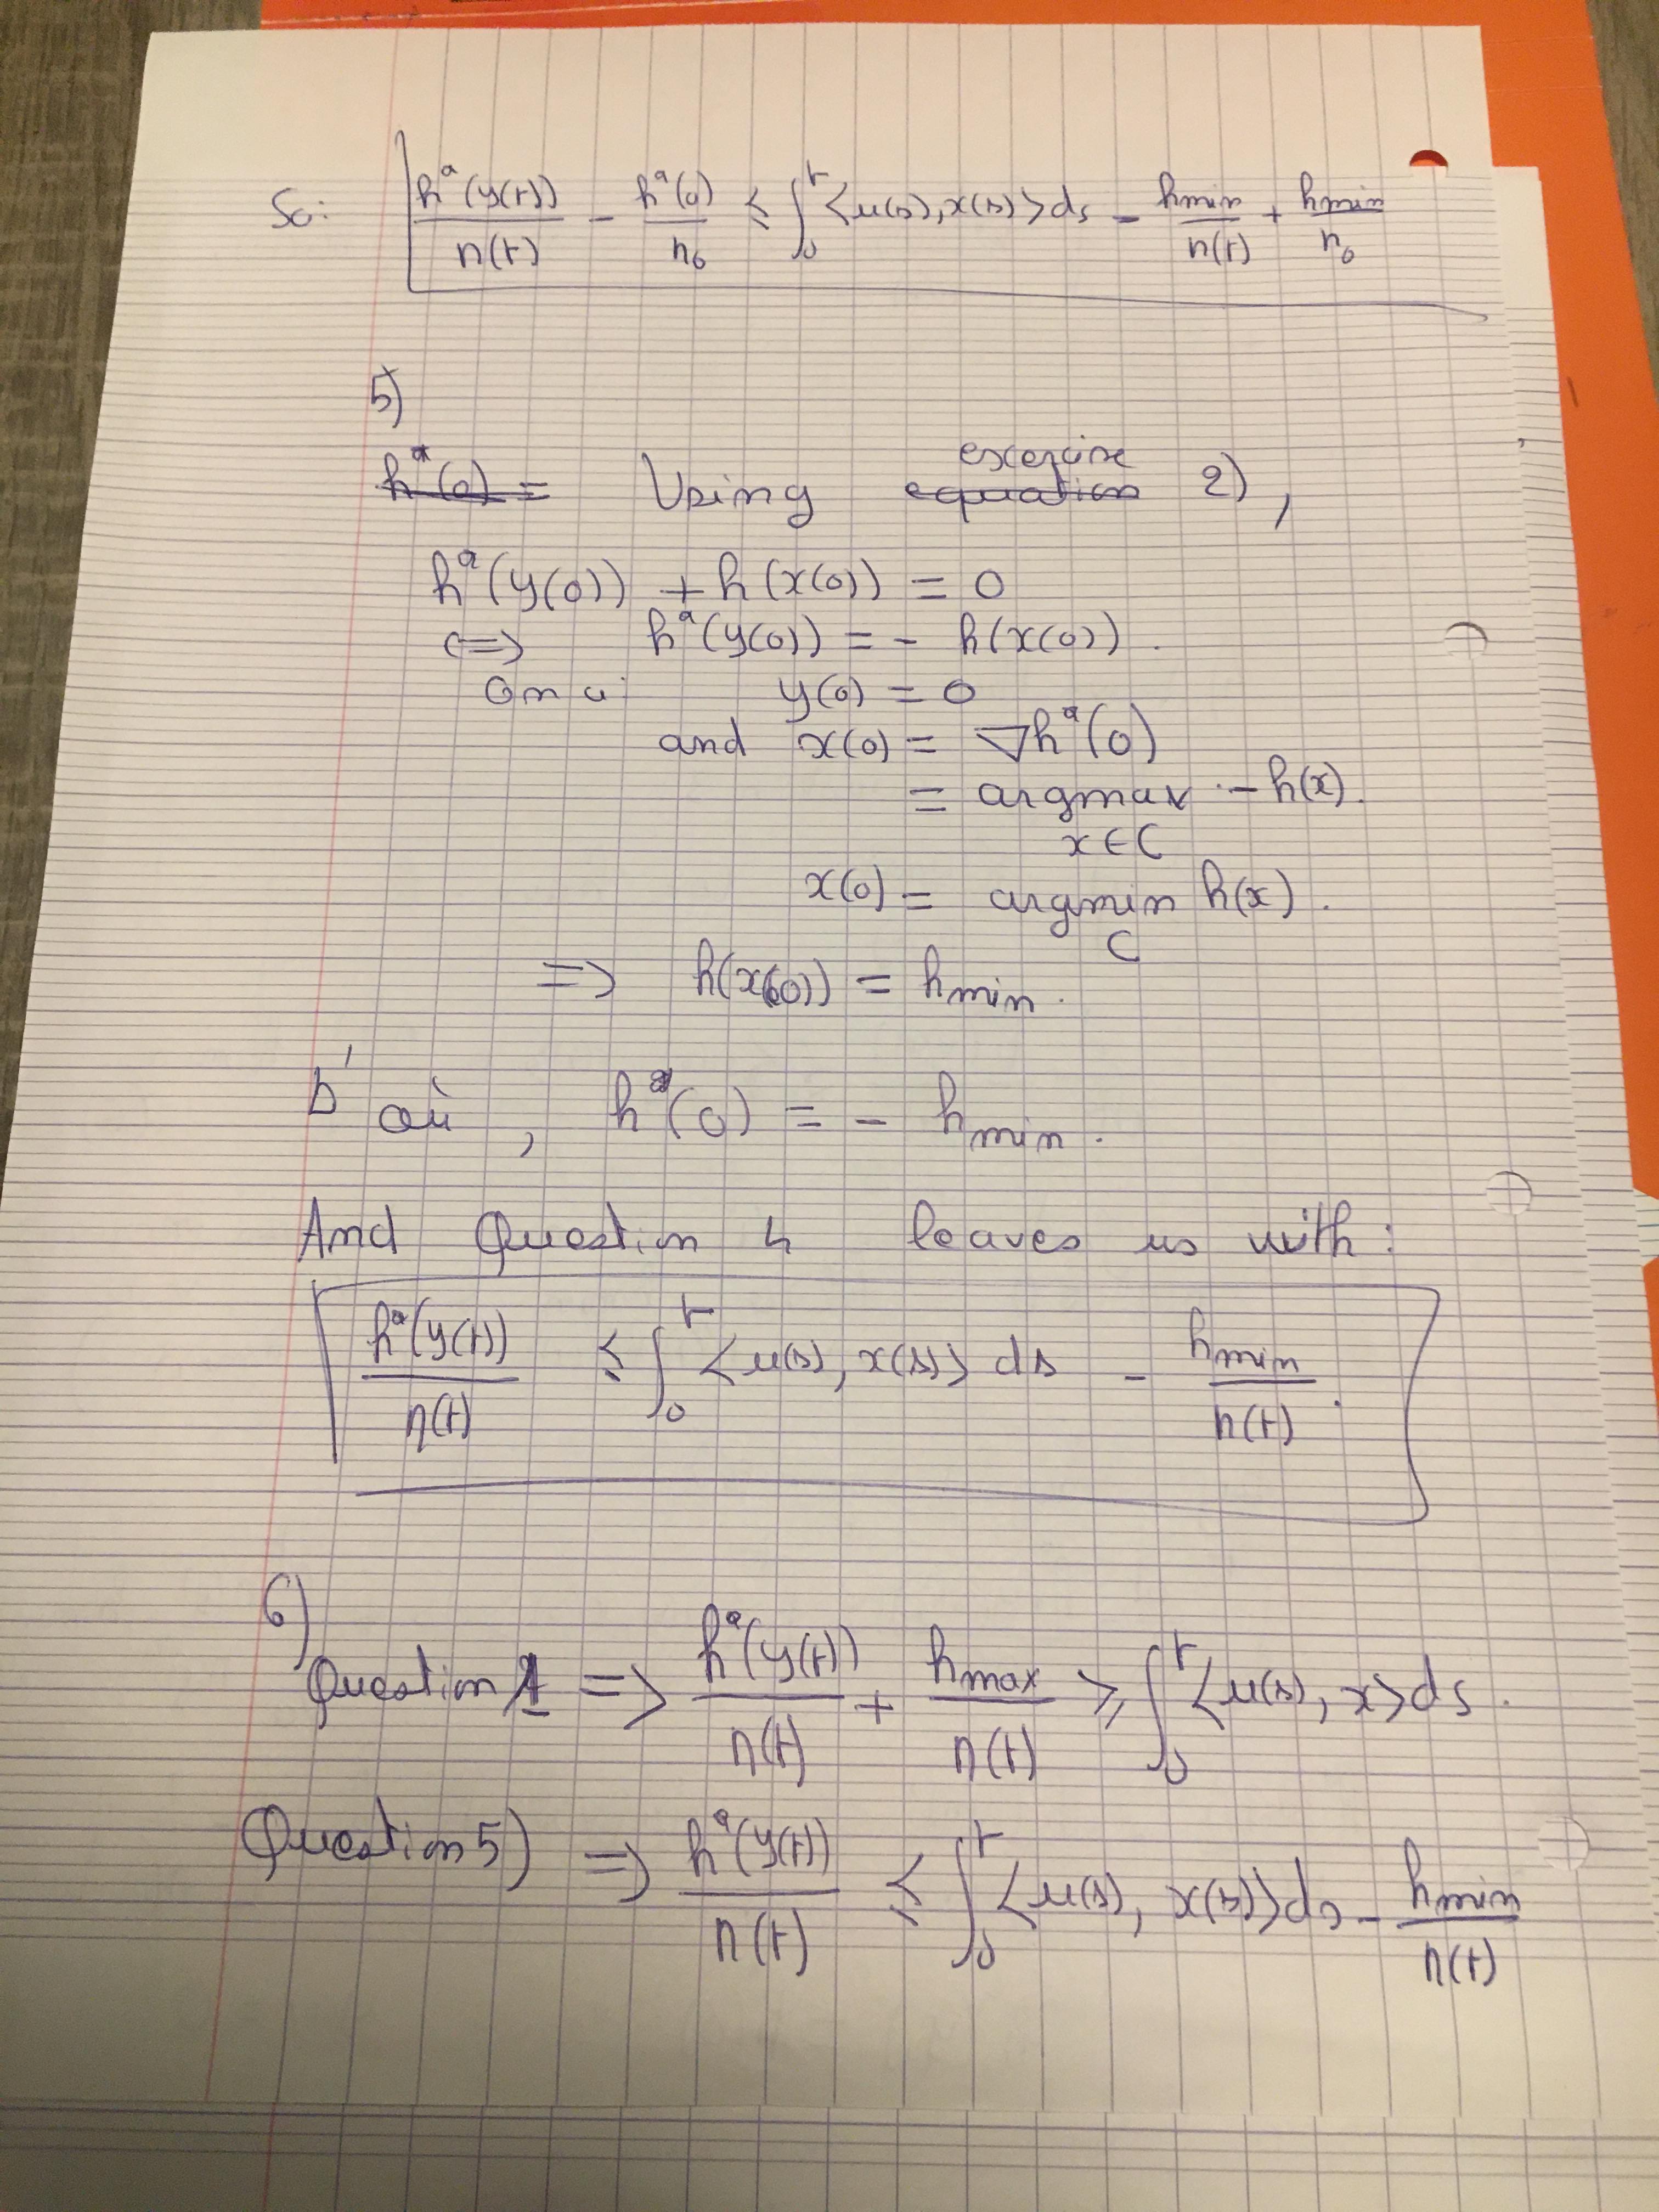 So: h*(y(t))/η(t) - h*(0)/η₀ ≤ ∫₀ᵗ <u(s), x(s)> ds - hmin/η(t) + hmin/η₀
5)
h*(0) = Using equation exercise 2),
h*(y(0)) + h(x(0)) = 0
<=> h*(y(0)) = - h(x(0)).
On a: y(0) = 0
and x(0) = ∇h*(0)
= argmax - h(x).
x ∈ C
x(0) = argmin h(x).
C
=> h(x(0)) = hmin.
D'où, h*(0) = - hmin.
And Question 4 leaves us with:
h*(y(t))/η(t) ≤ ∫₀ᵗ <u(s), x(s)> ds - hmin/η(t).
6)
Question 1 => h*(y(t))/η(t) + hmax/η(t) ≥ ∫₀ᵗ <u(s), x> ds.
Question 5) => h*(y(t))/η(t) ≤ ∫₀ᵗ <u(s), x(s)> ds - hmin/η(t)